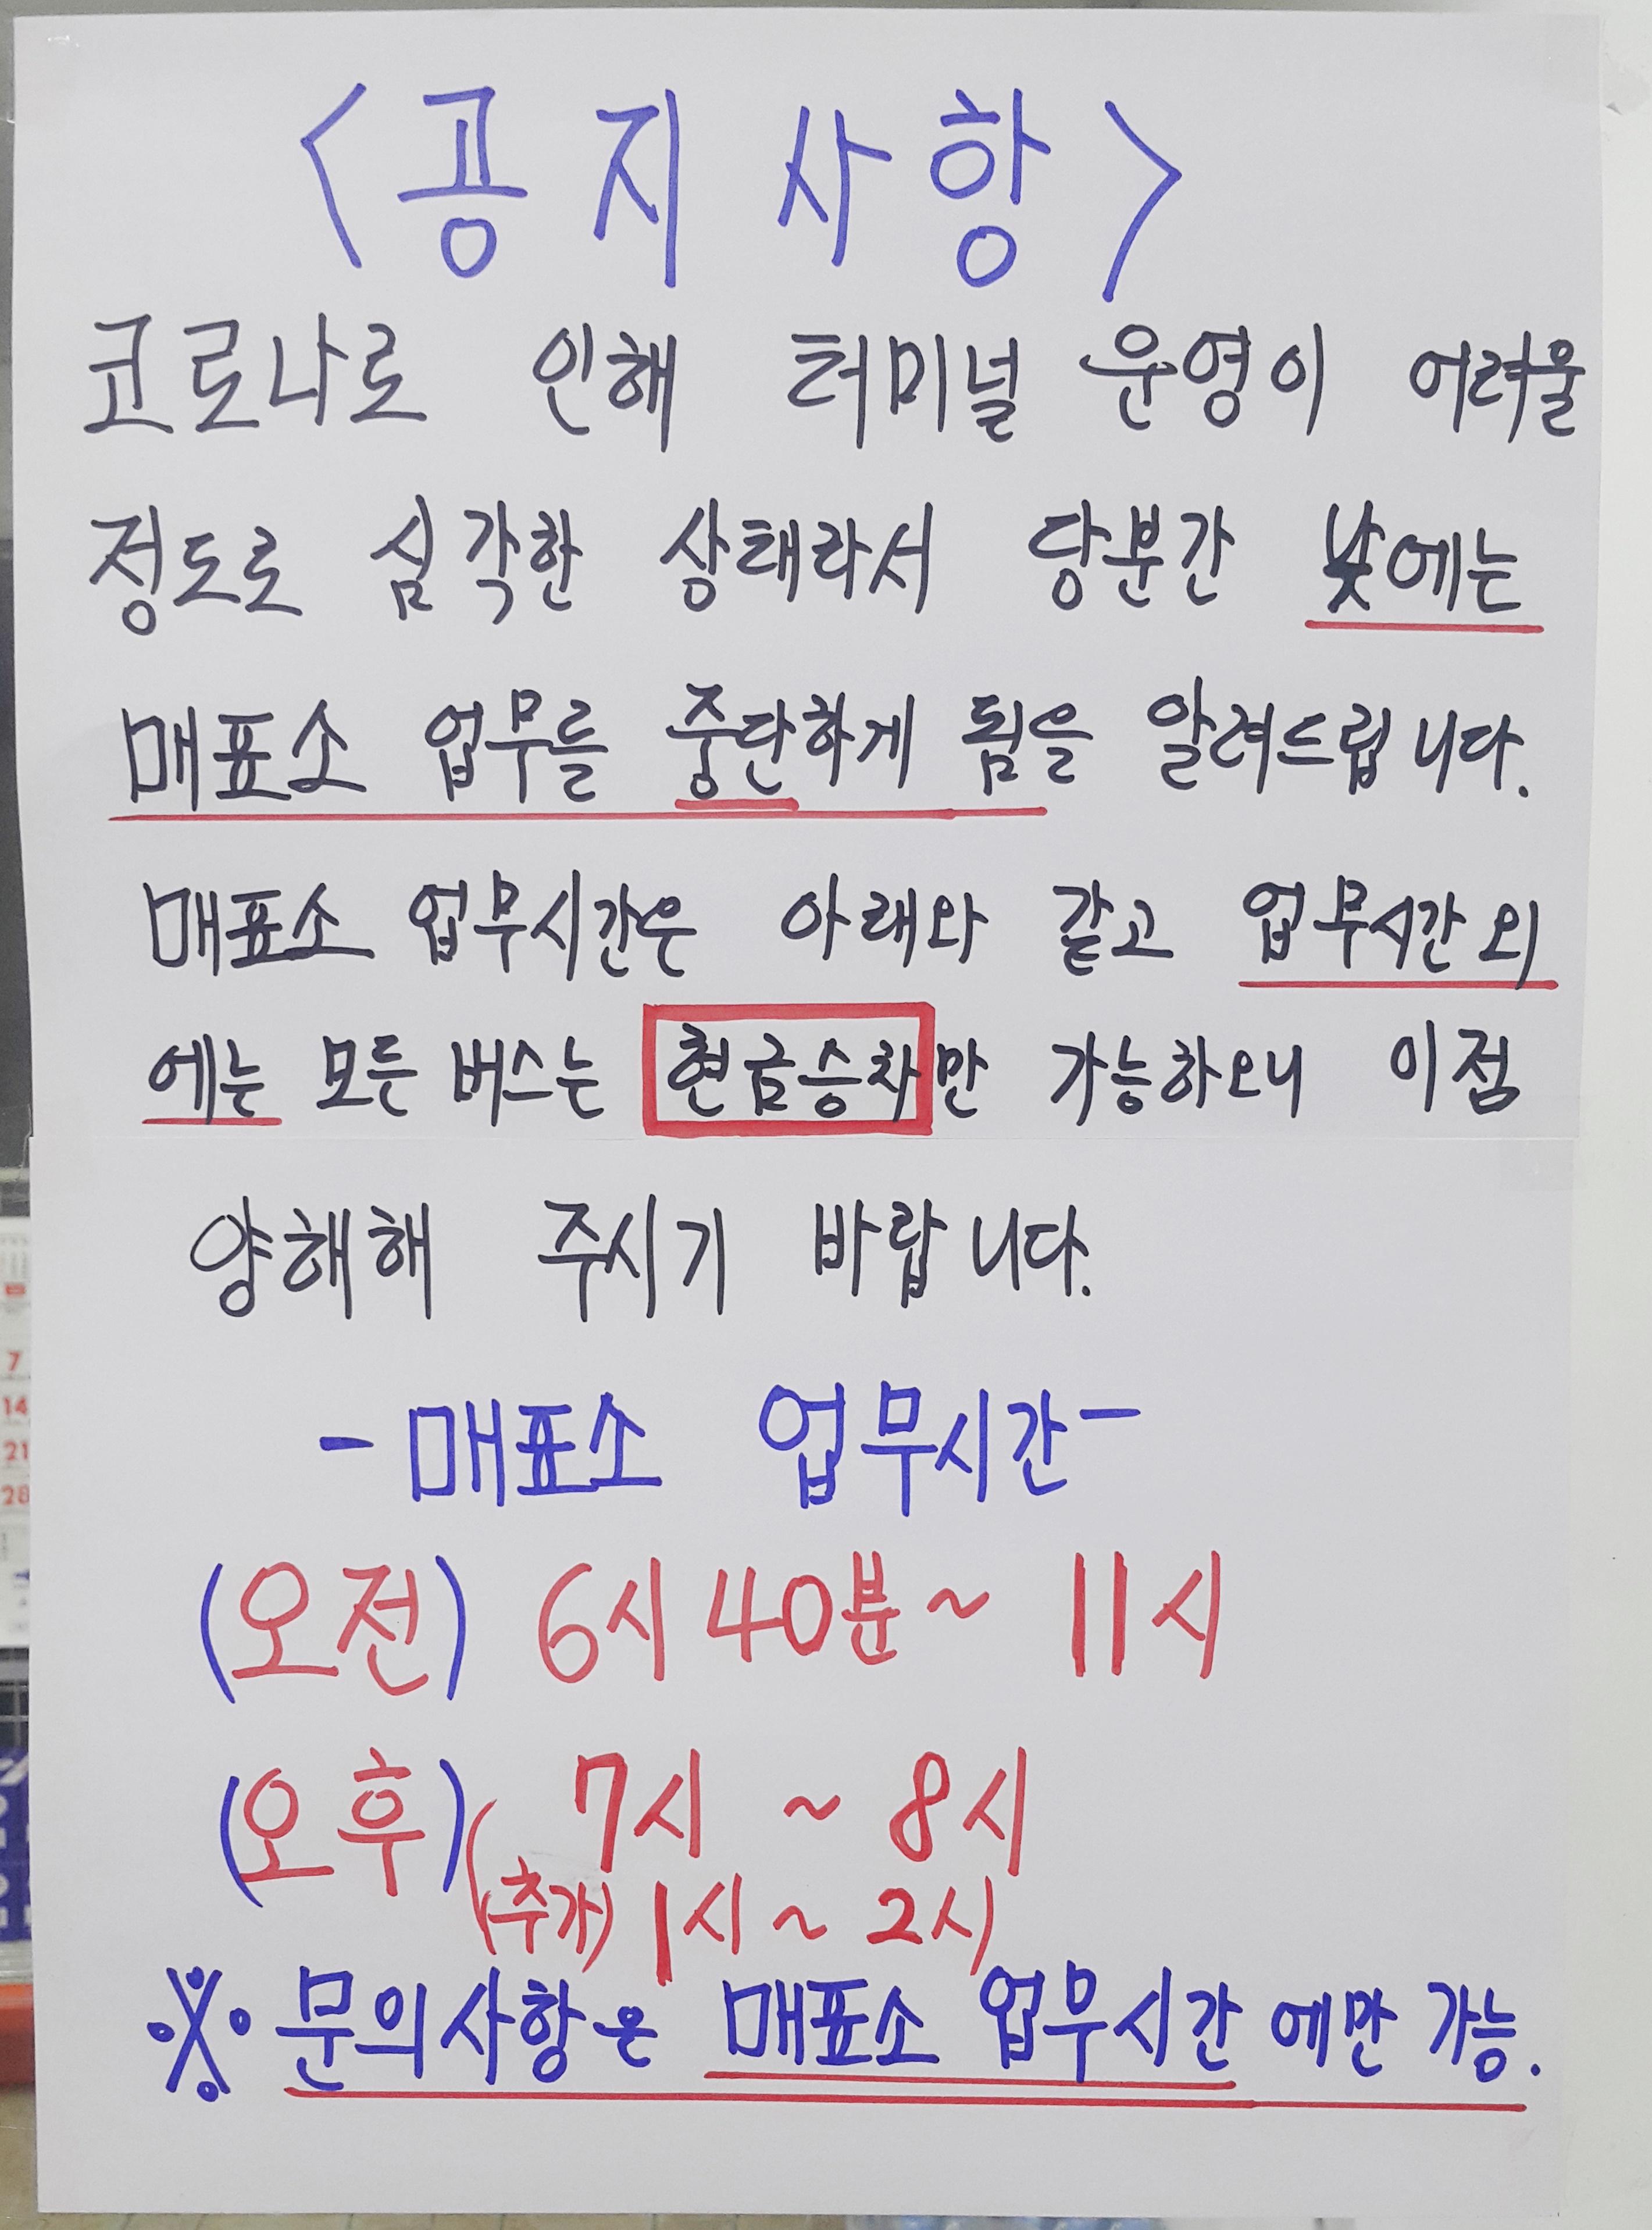 <공지사항>
코로나로 인해 터미널 운영이 어려울
정도로 심각한 상태라서 당분간 낮에는
매표소 업무를 중단하게 됨을 알려드립니다.
매표소 업무시간은 아래와 같고 업무시간 외
에는 모든 버스는 현금승차만 가능하오니 이점
양해해 주시기 바랍니다.
-매표소 업무시간-
(오전) 6시 40분 ~ 11시
(오후) 7시 ~ 8시
(추가) 1시 ~ 2시
※ 문의사항은 매표소 업무시간 에만 가능.
7
14
21
28